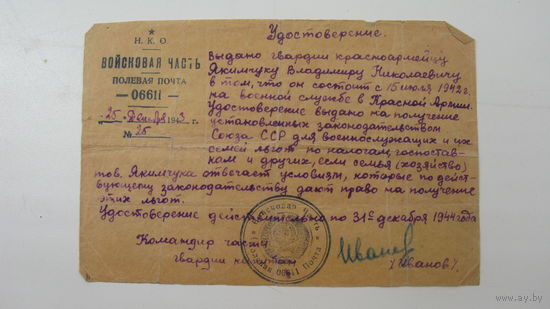 Удостоверение.
Н. К. О.
ВОЙСКОВАЯ ЧАСТЬ
ПОЛЕВАЯ ПОЧТА
— 06611 —
„25" декабря 1943 г.
№ 25
Выдано гвардии красноармейцу
Якимчуку Владимиру Николаевичу
в том, что он состоит с 15 июля 1942 г.
на военной службе в Красной Армии.
Удостоверение выдано на получение
установленных законодательством
Союза ССР для военнослужащих и их
семей льгот по налогам, госпостав-
кам и других, если семья (хозяйство)
тов. Якимчука отвечает условиям, которые по дейст-
вующему законодательству дают право на получение
этих льгот.
Удостоверение действительно по 31е декабря 1944 года
Командир части
гвардии капитан
Иванов
/Иванов/.
Войсковая Часть
Полевая Почта
06611
ay.by